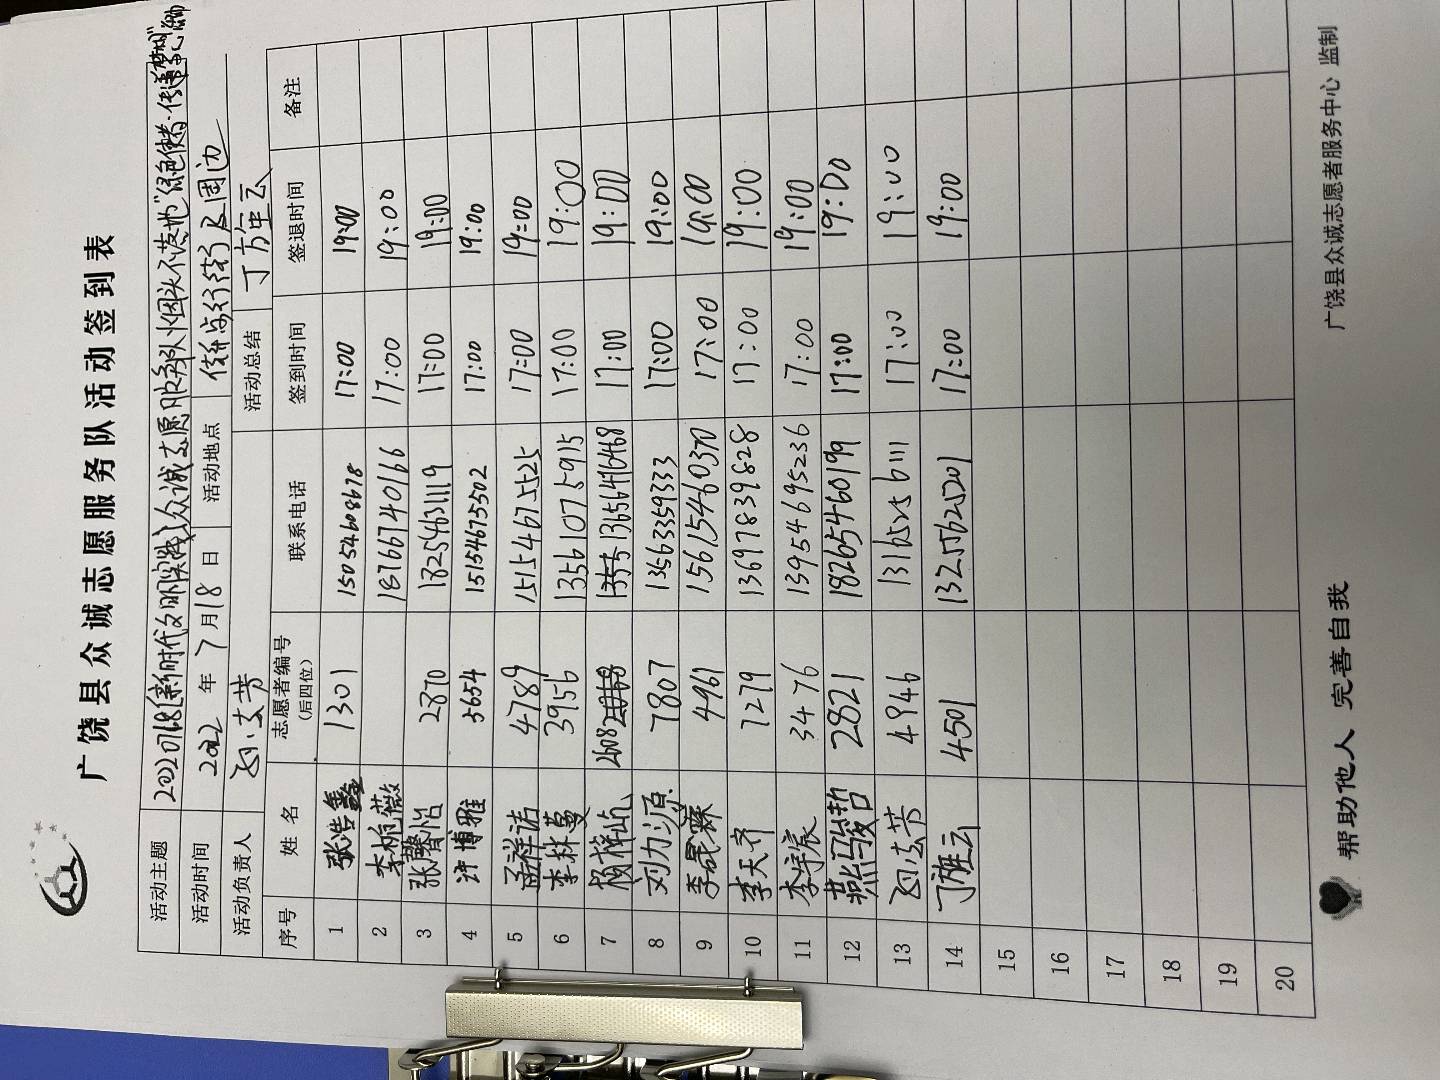 广饶县众诚志愿服务队活动签到表
活动主题 20220718新时代文明实践众诚志愿服务队"烟头不落地"绿色使者·传递
活动时间 2022 年 7 月 18 日 活动地点 传和步行街及周边
活动负责人 芳 活动总结 丁旋云
序号 姓名 志愿者编号(后四位) 联系电话 签到时间 签退时间 备注
1 张浩鑫 1301 15054608678 17:00 19:00
2 李桅薇 18766740166 17:00 19:00
3 张馨怡 2870 18254631119 17:00 19:00
4 许博雅 5654 15154675502 17:00 19:00
5 孟祥诺 4789 15154675525 17:00 19:00
6 李林蔓 3956 13561075915 17:00 19:00
7 杨梓屹 2608 13656476468 17:00 19:00
8 刘力源 7807 13563359333 17:00 19:00
9 李晟霖 4961 15615460370 17:00 19:00
10 李天齐 7279 13697839828 17:00 19:00
11 李宇宸 3476 13954695236 17:00 19:00
12 燕骏哲 2821 18265460199 17:00 19:00
13 芳 4946 13165256111 17:00 19:00
14 丁旋云 4501 13255625201 17:00 19:00
15
16
17
18
19
20
帮助他人 完善自我 广饶县众诚志愿者服务中心 监制